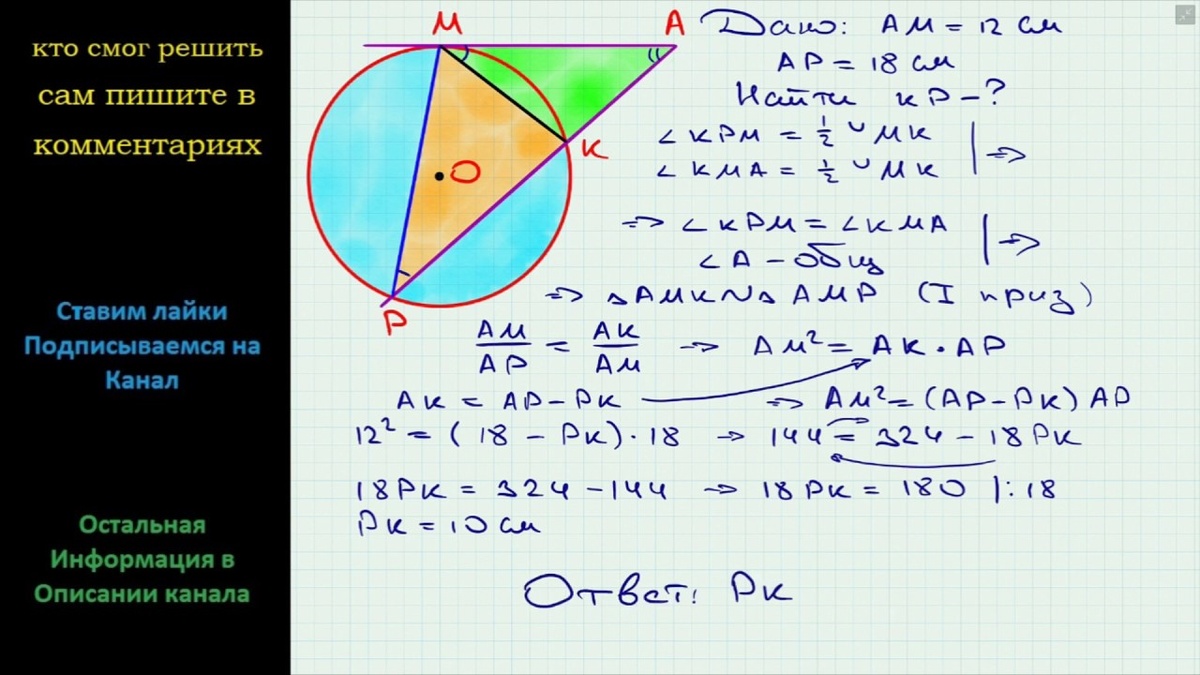 кто смог решить
сам пишите в
комментариях
Ставим лайки
Подписываемся на
Канал
Остальная
Информация в
Описании канала
M
A
K
O
P
Дано: AM = 12 см
AP = 18 см
Найти KP - ?
∠KPM = ½ ◡MK
∠KMA = ½ ◡MK ⇒
⇒ ∠KPM = ∠KMA
∠A - общ ⇒
⇒ △AMK ~ △AMP (I приз)
AM/AP = AK/AM → AM² = AK · AP
AK = AP - PK ⇒ AM² = (AP - PK) AP
12² = (18 - PK) · 18 → 144 = 324 - 18PK
18PK = 324 - 144 → 18PK = 180 |: 18
PK = 10 см
Ответ: PK